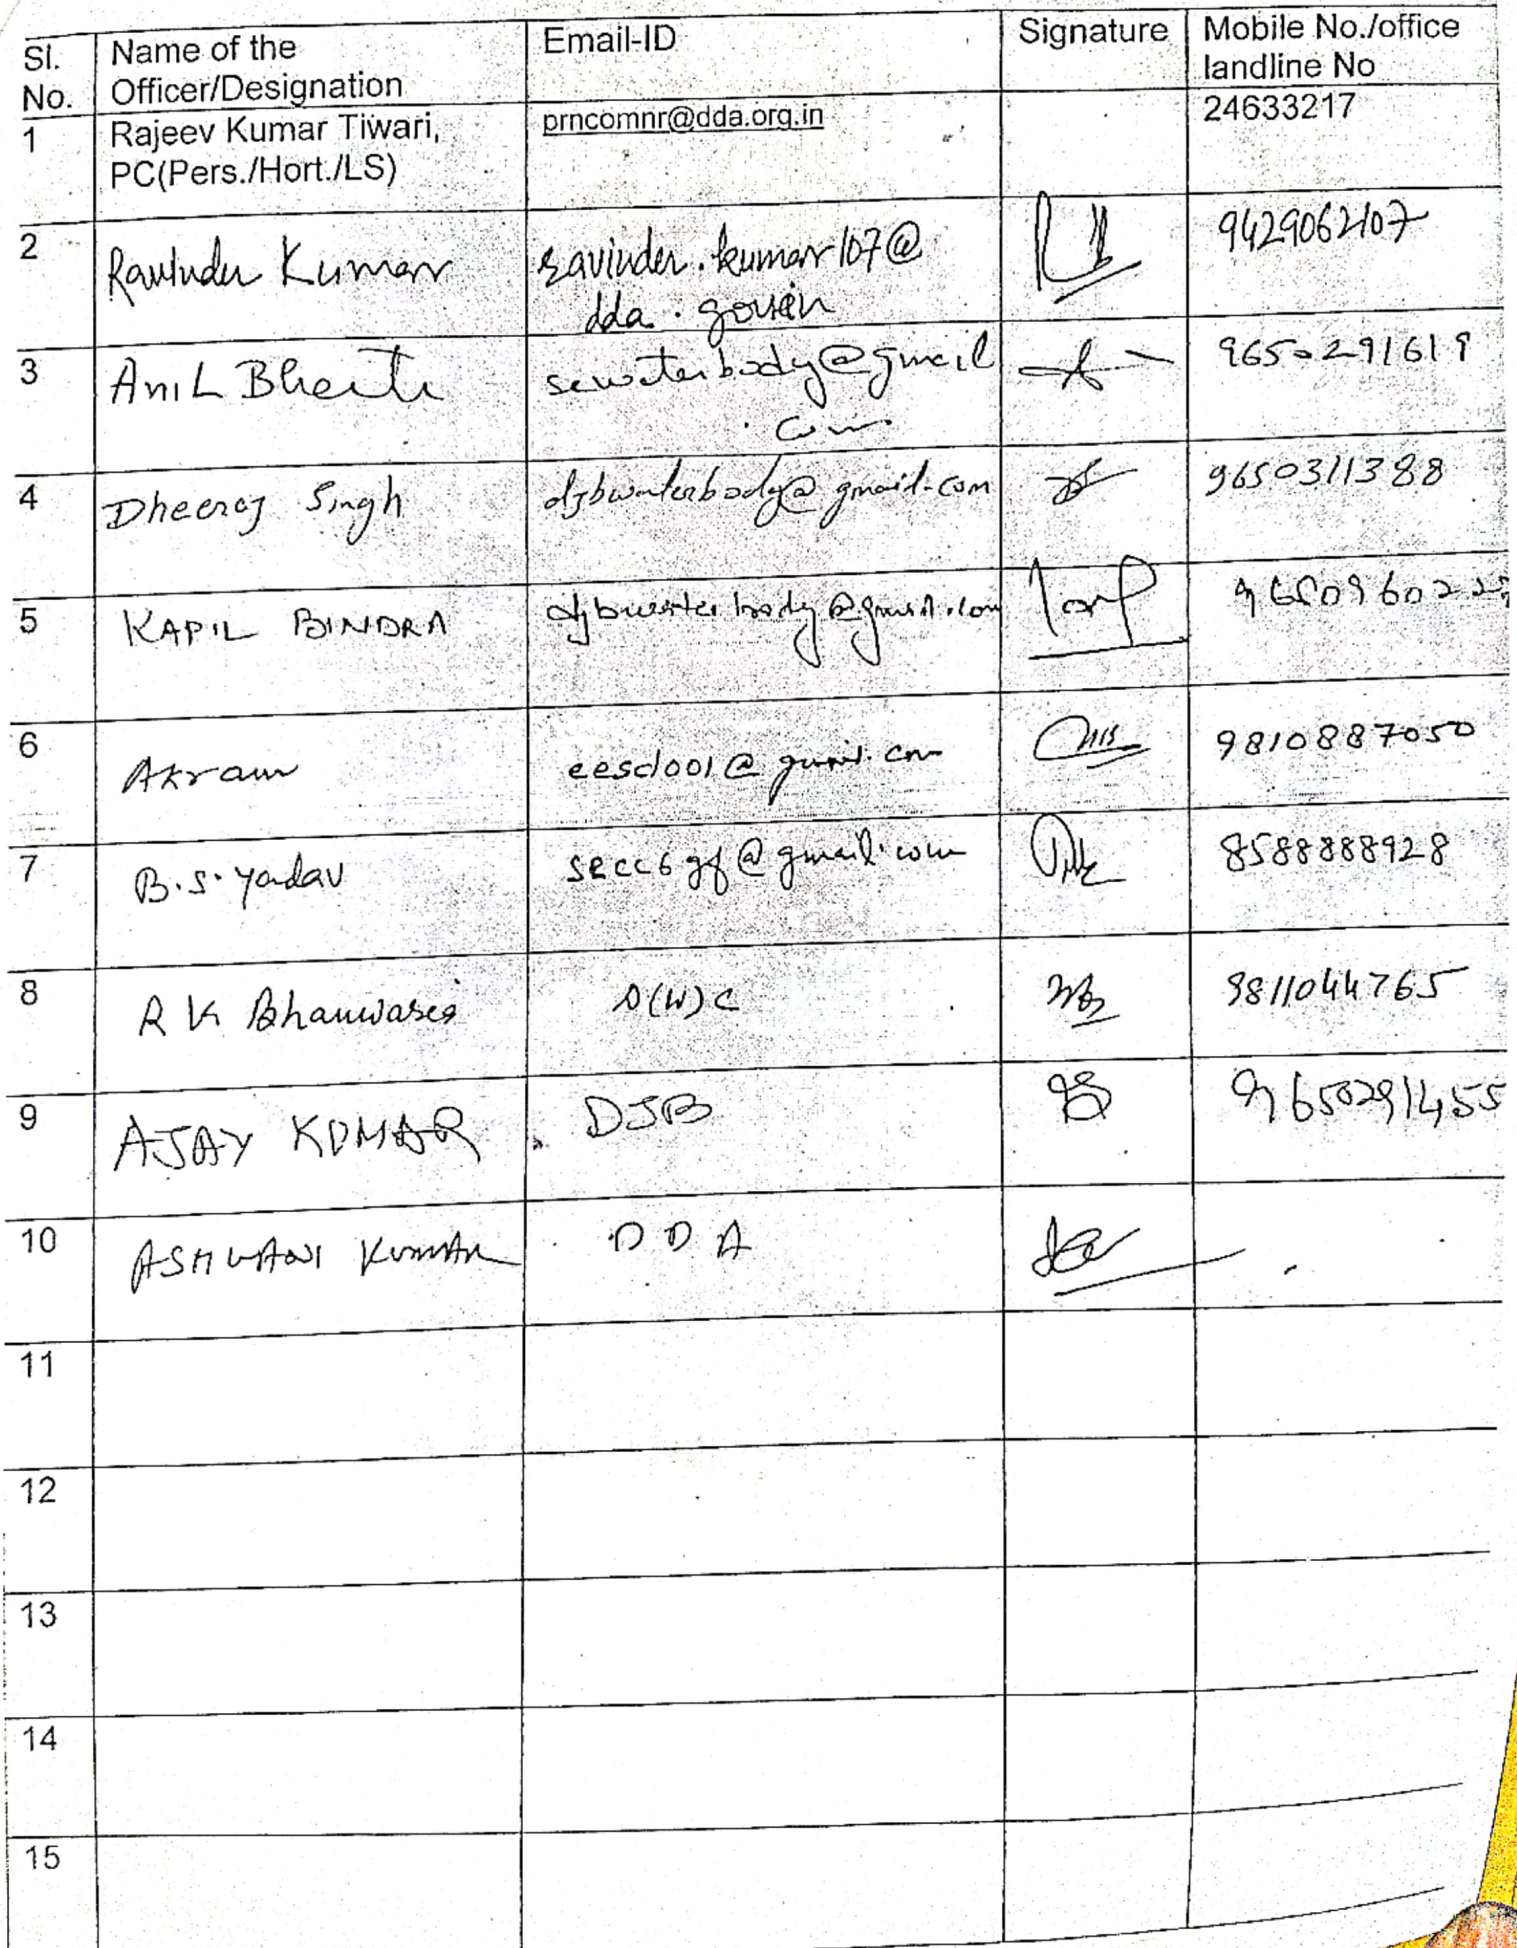 Sl. No. Name of the Officer/Designation Email-ID Signature Mobile No./office landline No
1 Rajeev Kumar Tiwari, prncomnr@dda.org.in 24633217
PC(Pers./Hort./LS)
2 Ravinder Kumar ravinder.kumar107@ 9429062107
dda.gov.in
3 Anil Bharti sewaterbody@gmail 9650291619
.com
4 Dheeraj Singh djbwaterbody@gmail.com 9650311388
5 KAPIL BINDRA djbwaterbody@gmail.com
6 Akram eesdool@gmail.com 9810887050
7 B.S. Yadav secc6gf@gmail.com 8588888928
8 R K 9811044765
9 AJAY KUMAR DJB 9650291455
10 ASHWANI KUMAR DDA
11
12
13
14
15